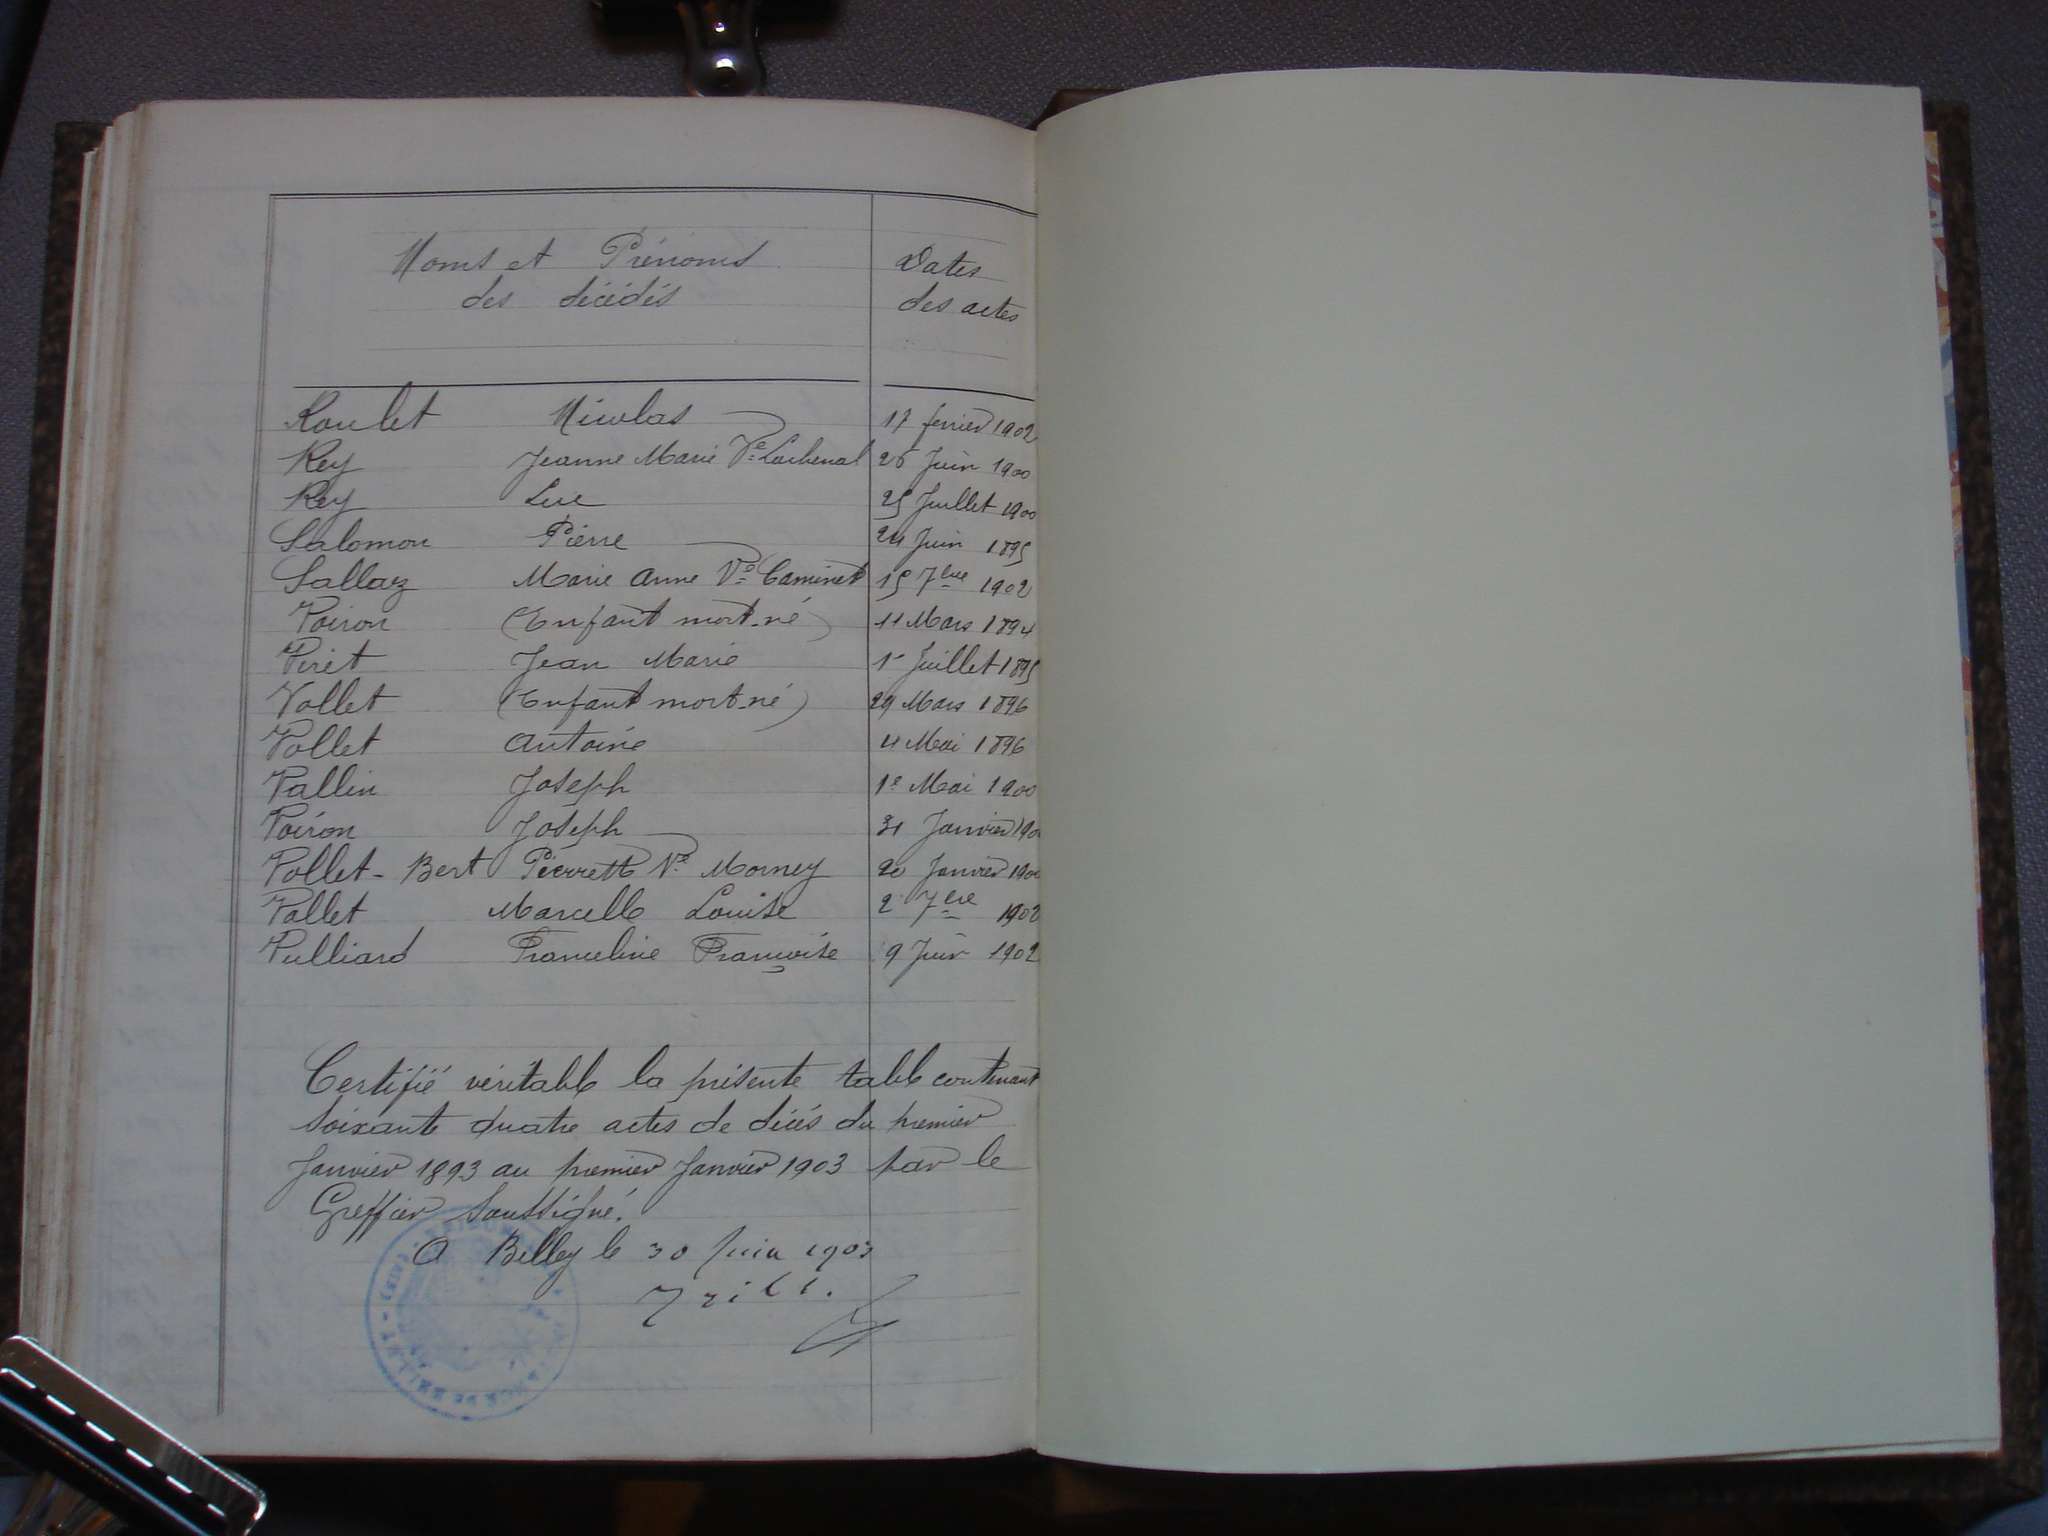 Noms et Prénoms
des décédés
Dates
des actes
Roulet Nicolas 17 fevrier 1902
Rey Jeanne Marie Ve Lachenal 26 Juin 1900
Rey Luc 25 Juillet 1900
Salomon Pierre 24 Juin 1895
Sallaz Marie Anne Ve Caminet 15 7bre 1902
Voiron (Enfant mort-né) 11 Mars 1894
Viret Jean Marie 1r Juillet 1895
Vollet (Enfant mort-né) 29 Mars 1896
Vollet Antoine 4 Mai 1896
Vallin Joseph 1e Mai 1900
Voiron Joseph 31 Janvier 190
Vollet-Bert Pierrette Ve Morney 20 Janvier 190
Vallet Marcelle Louise 2 7bre 1902
Vulliard Franceline Françoise 9 Juin 1902
Certifié véritable la présente table contenant
soixante quatre actes de décès du premier
Janvier 1893 au premier Janvier 1903 par le
Greffier Soussigné.
A Belley le 30 Juin 1903
DE BELLEY